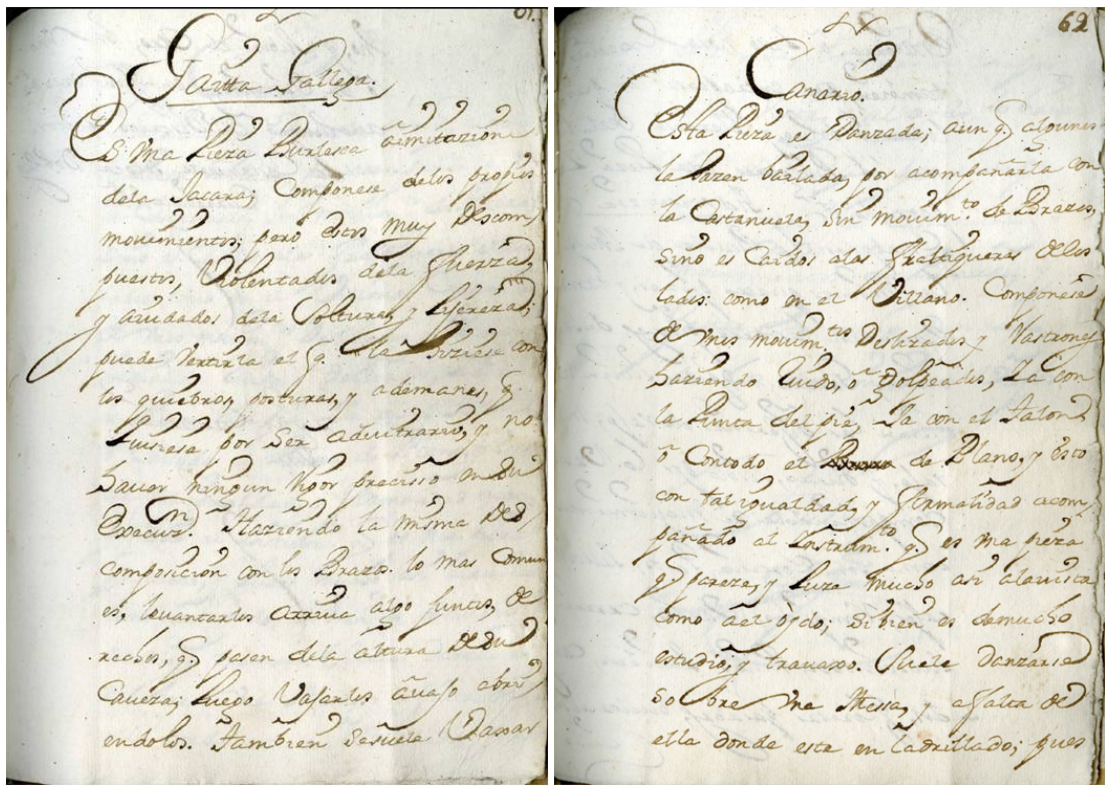 61.
Gaitta Gallega.
Es Vna Pieza Burlesca aimitazion
dela Jacara; Componese delos propios
movimientos; pero estos muy descom,
puestos, Violentados dela fuerza,
y aiudados dela Soltura, y Lijereza;
puede Vertirla el q. la Hiziese con
los quiebros, posturas, y ademanes, q.
quisiese por ser advitrario, y no
haver ningun rigor precisso en su
Execuz.n Haziendo la misma des,
composicion con los Brazos. lo mas Comun
es, levantarlos arriva algo juntos, de
rechos, q. pasen dela altura de su
Caveza; Luego Vajarlos avajo abri
endolos. Tambien sesuele
62
Canario.
Esta Pieza es Danzada; aun q. algunos
la hazen bailada, por acompañarla con
la Castañuela, sin movim.to de Brazos,
sino es Caidos alas Fraltiqueras delos
lados: como en el Villano. Componese
de Vnos movim.tos Deslizados, y Rastrones
haziendo Ruido, o Golpeados, Ya con
la Punta del pie, Ya con el Talon
o Contodo el de Plano, y esto
con tal igualdad, y formalidad acom,
pañado al Instrum.to q. es Vna pieza
q. pareze, y Luze mucho asi alavista
como ael oydo; si bien es demucho
estudio, y travaxo. Suele Danzarse
sobre Vna Messa, y afalta de
ella donde este enladrillado; pues